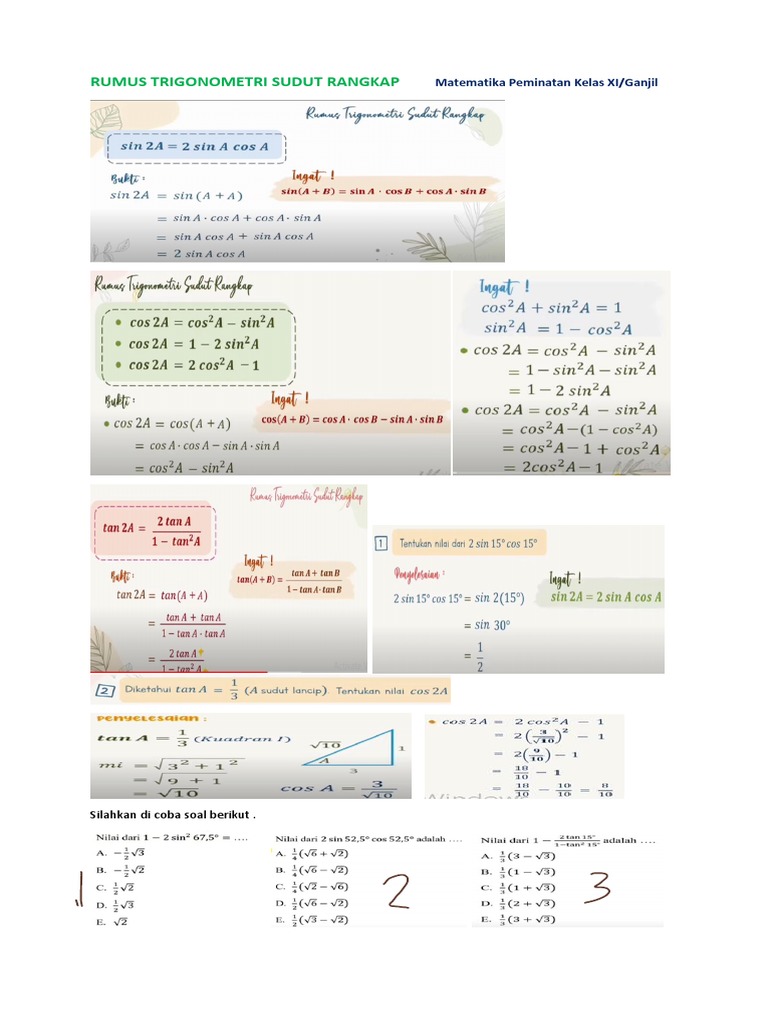 RUMUS TRIGONOMETRI SUDUT RANGKAP Matematika Peminatan Kelas XI/Ganjil
Rumus Trigonometri Sudut Rangkap
sin 2A = 2 sin A cos A
Bukti :
Ingat !
sin(A + B) = sin A · cos B + cos A · sin B
sin 2A = sin (A + A)
= sin A · cos A + cos A · sin A
= sin A cos A + sin A cos A
= 2 sin A cos A
Rumus Trigonometri Sudut Rangkap
• cos 2A = cos²A − sin²A
• cos 2A = 1 − 2 sin²A
• cos 2A = 2 cos²A − 1
Bukti :
Ingat !
cos(A + B) = cos A · cos B − sin A · sin B
• cos 2A = cos(A + A)
= cos A · cos A − sin A · sin A
= cos²A − sin²A
Ingat !
cos²A + sin²A = 1
sin²A = 1 − cos²A
• cos 2A = cos²A − sin²A
= 1 − sin²A − sin²A
= 1 − 2 sin²A
• cos 2A = cos²A − sin²A
= cos²A − (1 − cos²A)
= cos²A − 1 + cos²A
= 2cos²A − 1
Rumus Trigonometri Sudut Rangkap
tan 2A = 2 tan A / 1 − tan²A
Bukti :
Ingat !
tan(A + B) = tan A + tan B / 1 − tan A · tan B
tan 2A = tan(A + A)
= tan A + tan A / 1 − tan A · tan A
= 2 tan A / 1 − tan² A
1 Tentukan nilai dari 2 sin 15° cos 15°
Penyelesaian :
Ingat !
sin 2A = 2 sin A cos A
2 sin 15° cos 15° = sin 2(15°)
= sin 30°
= 1/2
2 Diketahui tan A = 1/3 (A sudut lancip). Tentukan nilai cos 2A
Penyelesaian :
tan A = 1/3 (Kuadran I)
mi = √3² + 1²
= √9 + 1
= √10
√10
1
A
3
cos A = 3/√10
• cos 2A = 2 cos²A − 1
= 2 (3/√10)² − 1
= 2(9/10) − 1
= 18/10 − 1
= 18/10 − 10/10 = 8/10
Silahkan di coba soal berikut .
1
Nilai dari 1 − 2 sin² 67,5° = ….
A. −1/2√3
B. −1/2√2
C. 1/2√2
D. 1/2√3
E. √2
2
Nilai dari 2 sin 52,5° cos 52,5° adalah ….
A. 1/4(√6 + √2)
B. 1/4(√6 − √2)
C. 1/4(√2 − √6)
D. 1/2(√6 − √2)
E. 1/2(√3 − √2)
3
Nilai dari 1 − 2 tan 15° / 1−tan² 15° adalah ….
A. 1/3(3 − √3)
B. 1/3(1 − √3)
C. 1/3(1 + √3)
D. 1/3(2 + √3)
E. 1/3(3 + √3)